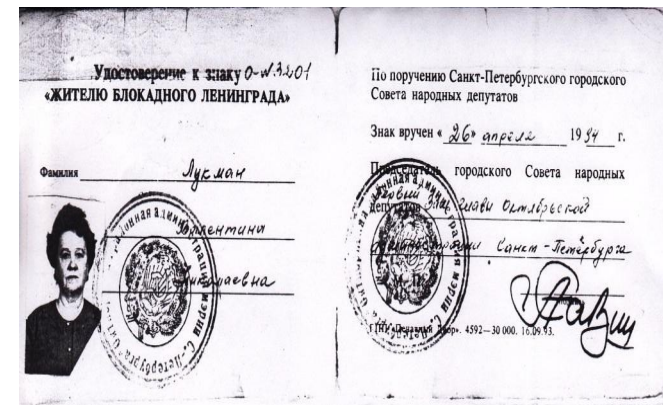 Удостоверение к знаку О-№3201
«ЖИТЕЛЮ БЛОКАДНОГО ЛЕНИНГРАДА»
Фамилия Лукман
Валентина
Николаевна
По поручению Санкт-Петербургского городского
Совета народных депутатов
Знак вручен « 26 » апреля 1994 г.
Председатель городского Совета народных
депутатов главы Октябрьской
администрации Санкт-Петербурга
М. П.
ГПП «Печатный Двор». 4592—30 000. 16.09.93.